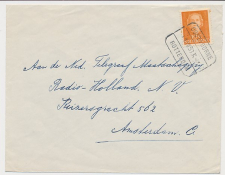 Aan de Ned. Telegraaf Maatschappij
Radio-Holland N.V.
Keizersgracht 562
Amsterdam C